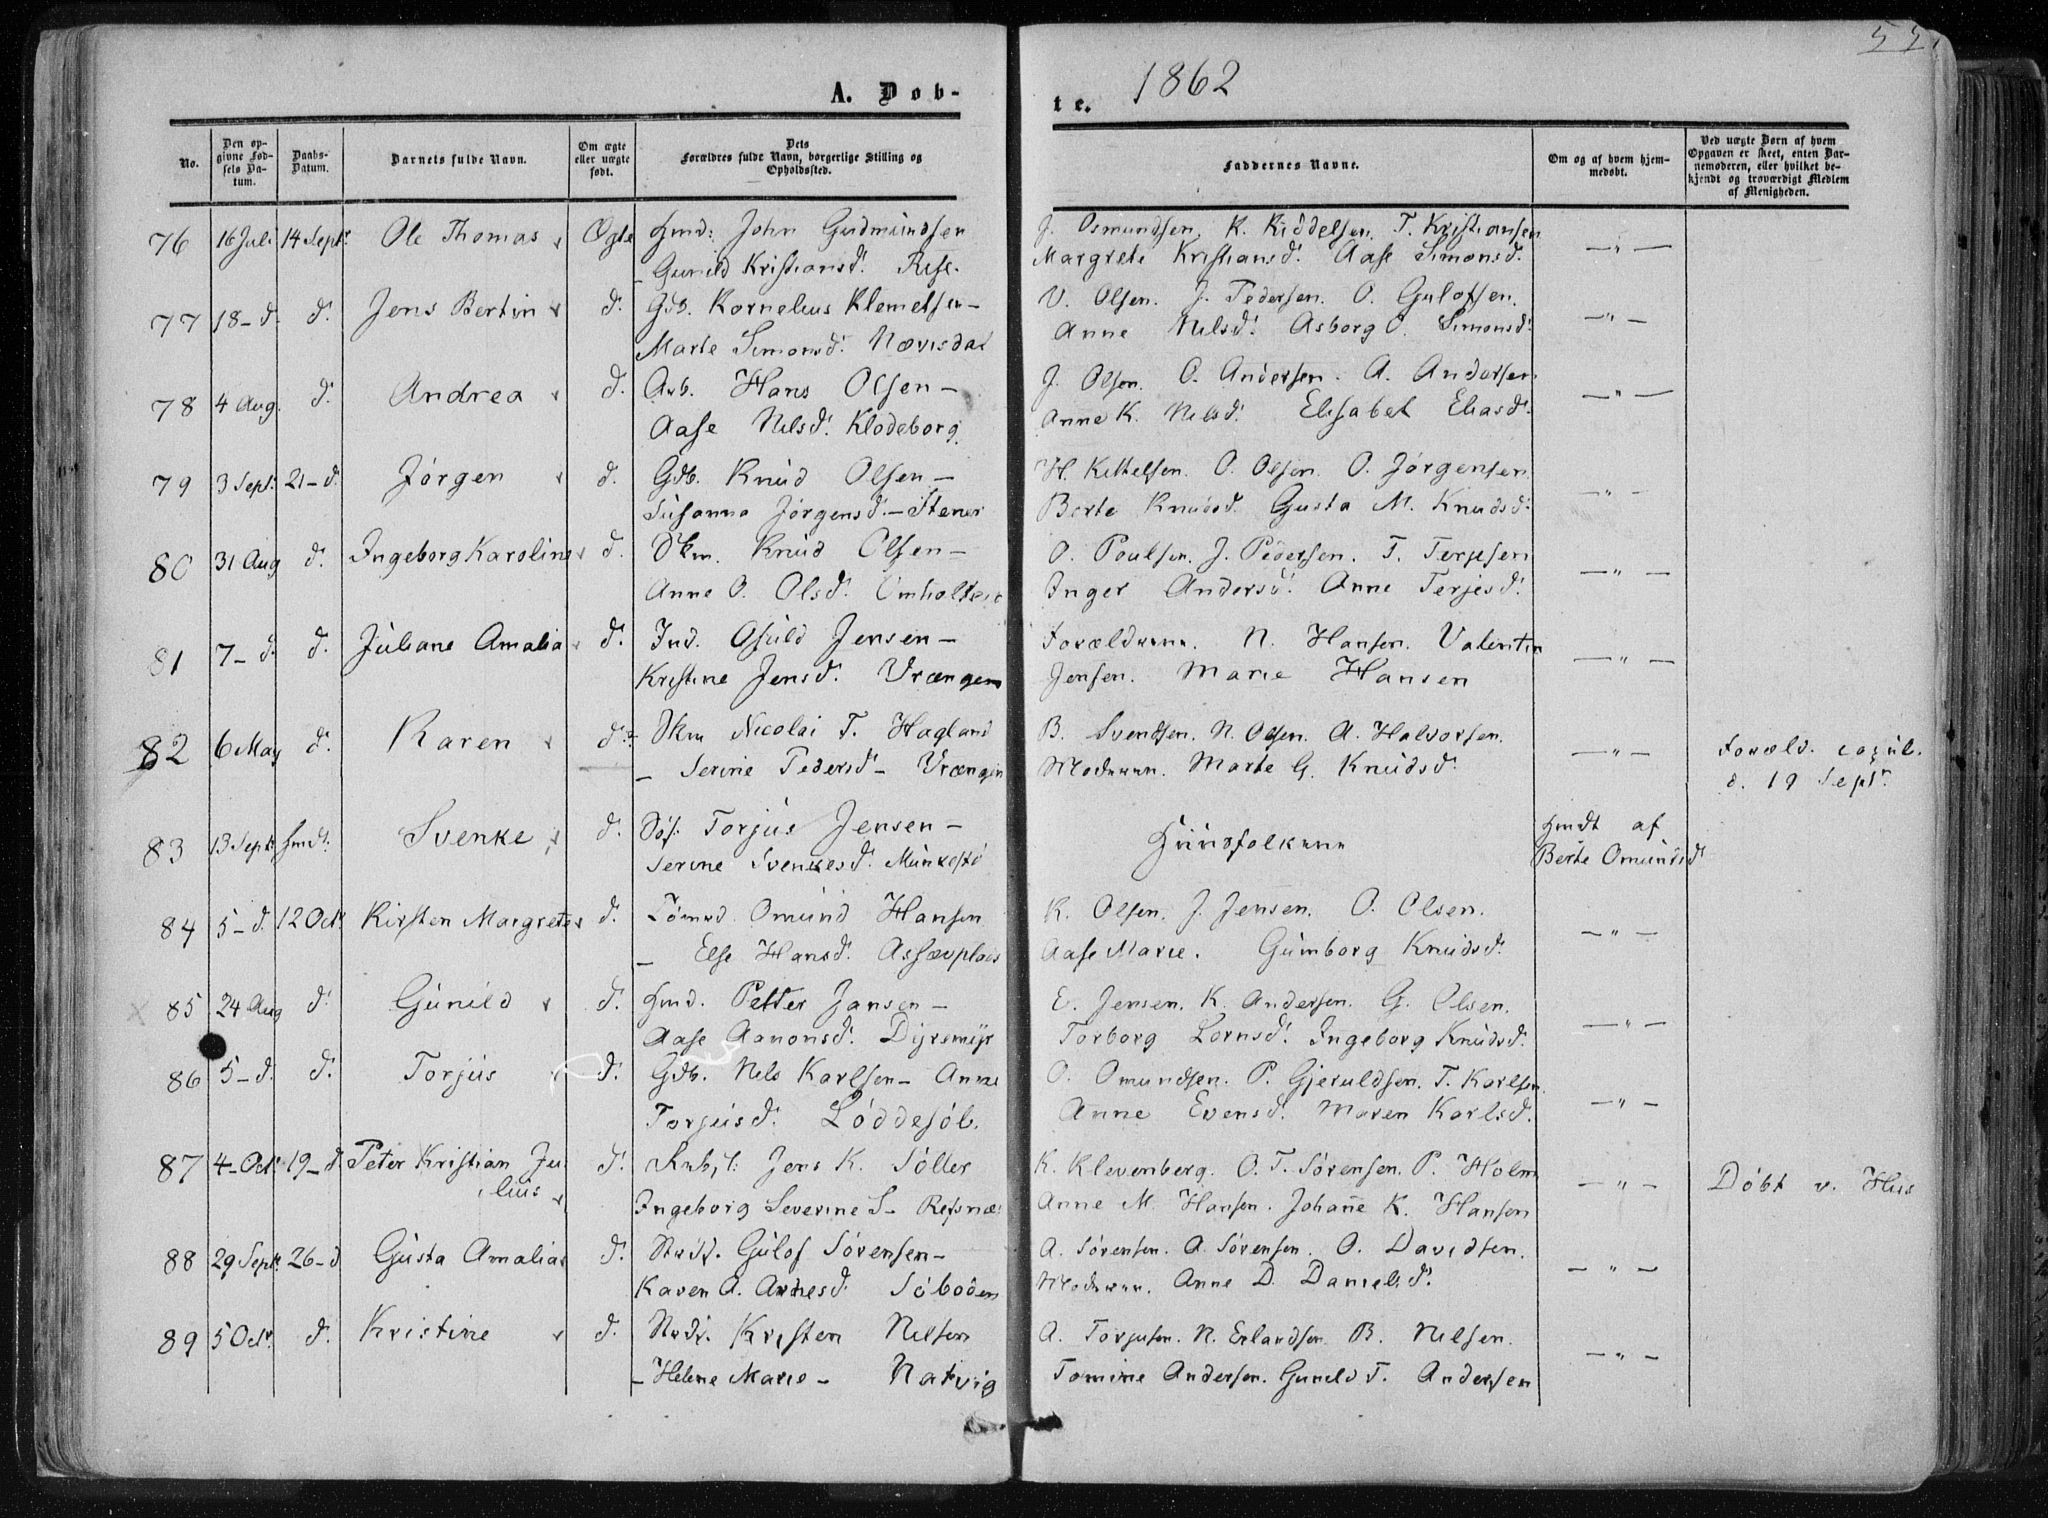 55.
1862
A. Døb-
te.
No.
Den op-
givne Fød-
sels Da-
tum.
Daabs-
Datum.
Barnets fulde Navn.
Om ægte
eller uægte
født.
Dets
Forældres fulde Navn, borgerlige Stilling og
Opholdssted.
Faddernes Navne.
Om og af hvem hjem-
medøbt.
Ved uægte Børn af hvem
Opgaven er skeet, enten Bar-
nemoderen, eller hvilket be-
kjendt og troværdigt Medlem
af Menigheden.
76 16 Juli 14 Sept. Ole Thomas Ægte Hmd: John Gudmundsen J. Osmundsen. K. Kiddelsen. T. Kristiansen
– Gunild Kristiansd. Rise. Margrete Kristiansd. Aase Simonsd. — " —
77 18 – d. d. Jens Bertin d. Gdb. Kornelius Klemetsen – V. Olsen. J. Pedersen. O. Gulofsen.
Marte Simonsd. Nævisdal Anne Nilsd. Asborg O. Simonsd. — " —
78 4 Aug. d. Andrea d. Arb. Hans Olsen – J. Olsen. O. Andersen. A. Andersen
Aase Nilsd. Klodeborg. Anne K. Nilsd. Elisabet Eliasd. — " —
79 3 Sept. 21 – d. Jørgen d. Gdb. Knud Olsen – H. Kittelsen. O. Olsen. O. Jørgensen
Susanna Jørgensd. – Stener Berte Knudsd. Gusta M. Knudsd. — " —
80 31 Aug d. Ingeborg Karoline d. Skm. Knud Olsen – O. Poulsen. J. Pedersen. T. Terjesen
Anne O. Olsd. Omholt Inger Andersd. Anne Terjesd. — " —
81 7 – d. d. Juliane Amalia d. Ind. Asuld Jensen – Forældrene. N. Hansen. Valentin
Kristine Jensd. Vrængen Jensen. Marie Hansen — " —
82 6 May d. Karen d. Skm Nicolai T. Hagland B. Svendsen. N. Olsen. A. Halvorsen.
– Serine Pedersd – Vrængen Moderen. Marte G. Knudsd. — " — Foræld. copul.
d. 19 Sept.
83 13 Sept. Hmd. Svenke d. Søf. Torjus Jensen –
Serine Svenkesd. Munkestø Huusfolkene Hmdt af
Berte Omundsd
84 5 – d. 12 Oct. Kirsten Margrete d. Tømmd. Omund Hansen K. Olsen. J. Jensen. O. Olsen.
– Else Hansd. Assævplads Aase Marie. Gumborg Knudsd. — " —
85 24 Aug d. Gunild d. Hmd. Petter Jansen – E. Jensen. K. Andersen. G. Olsen.
Aase Aanonsd. Dyremyr Torborg Lornsd. Ingeborg Knudsd. — " —
86 5 – d. d. Torjus d. Gdb. Nils Karlsen – Anne O. Omundsen. P. Gjeruldsen. T. Karlsen
Torjusd. Løddesøl. Anne Evensd. Maren Karlsd. — " —
87 4 – Oct. 19 – d. Peter Kristian Ju- d. Jens K. Søller K. Klevenberg. O. T. Sørensen. P. Holm
lius Ingeborg Severine S – Refsnæs Anne M. Hansen. Johanne K. Hansen — " — Døbt v. Hus
88 29 Sept. 26 – d Gusta Amalia d. Gulof Sørensen – A. Sørensen. A. Sørensen. O. Davidsen.
Karen A. Arnesd. Søboden Moderen. Anne D. Danielsd. — " —
89 5 Oct. d. Kristine d. Kristen Nilsen A. Torjusen. N. Erlandsen. B. Nilsen.
– Helene Marie – Natvig Tomine Andersen. Gunild T. Andersen — " —